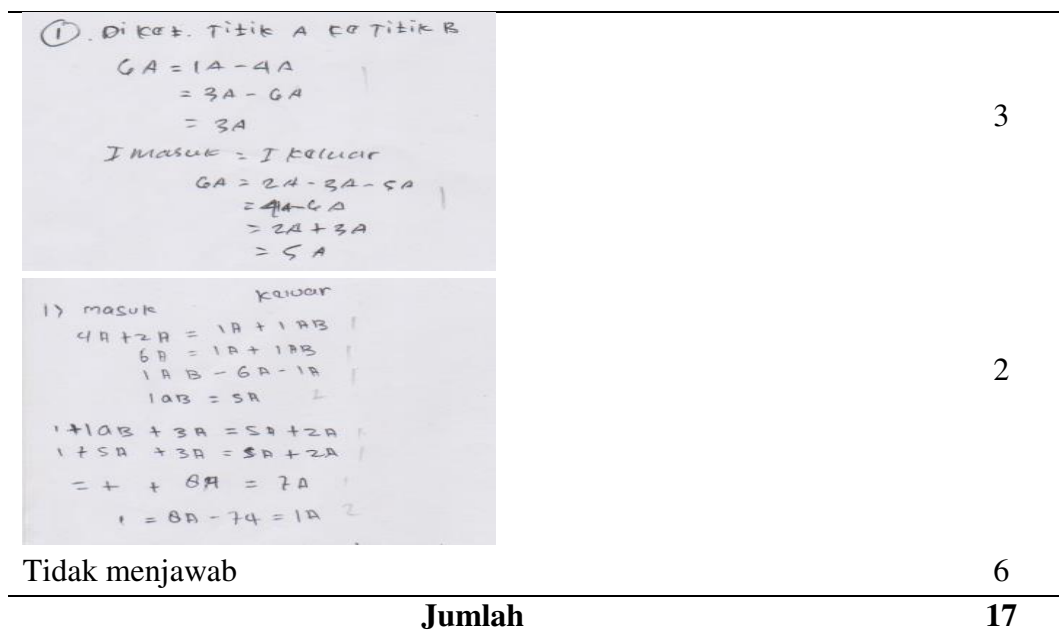 ① . Diket. Titik A ke Titik B
6A = 1A - 4A
= 3A - 6A
= 3A
I masuk = I keluar
6A = 2A - 3A - 5A
= 2A + 3A
= 5A
3
1) masuk keluar
4A + 2A = 1A + I AB
6A = 1A + I AB
I AB - 6A - 1A
I aB = 5A
I + I aB + 3A = 5A + 2A
I + 5A + 3A = 5A + 2A
= + + 8A = 7A
I = 8A - 74 = 1A
2
Tidak menjawab 6
Jumlah 17